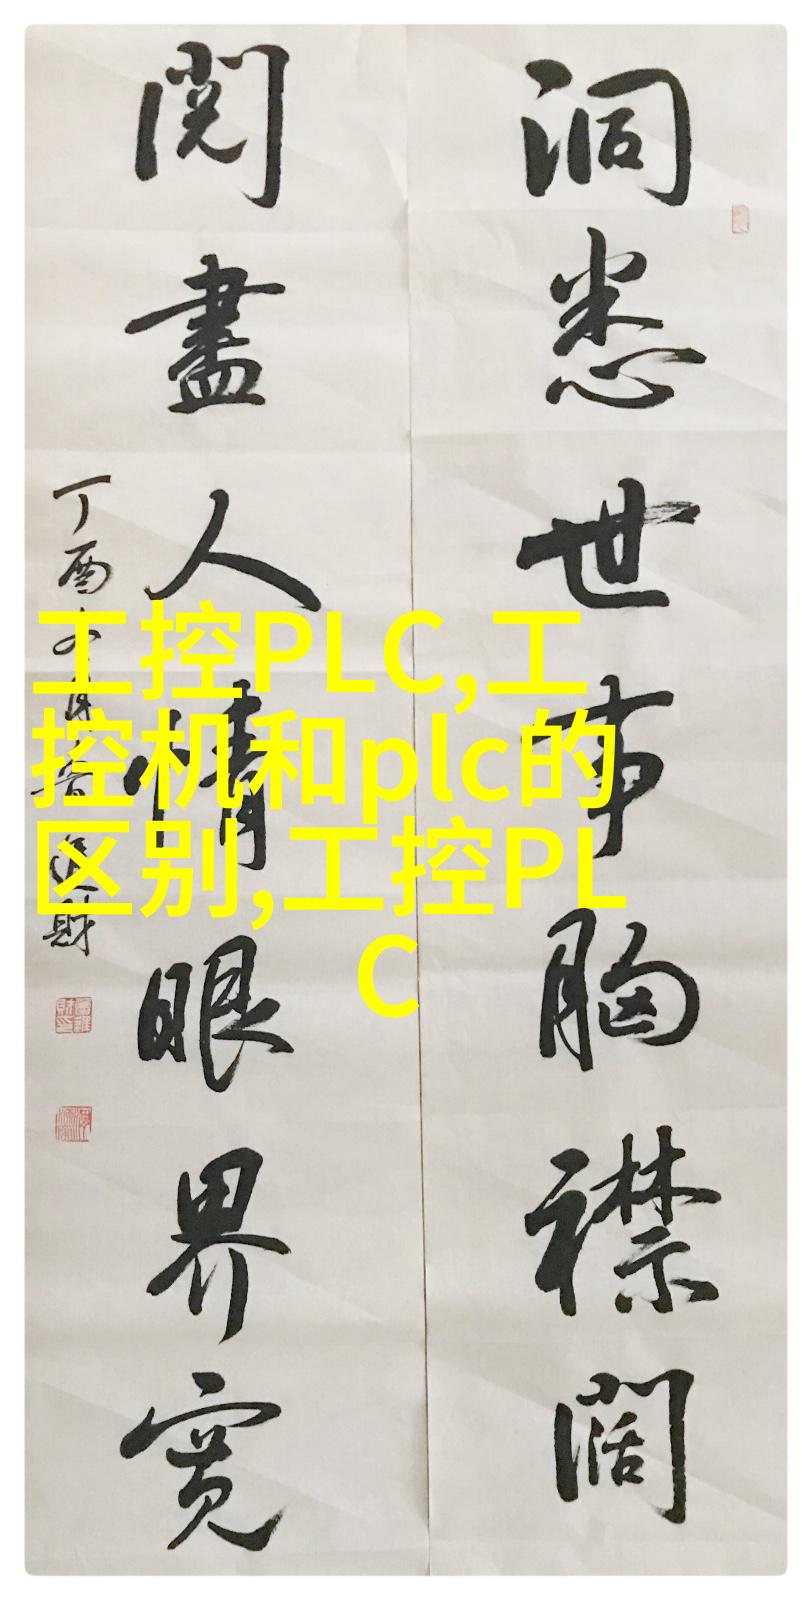 洞悉世事胸襟闊
閱盡人情眼界寬
丁酉
工控PLC,工
控机和plc的
区别,工控PL
C